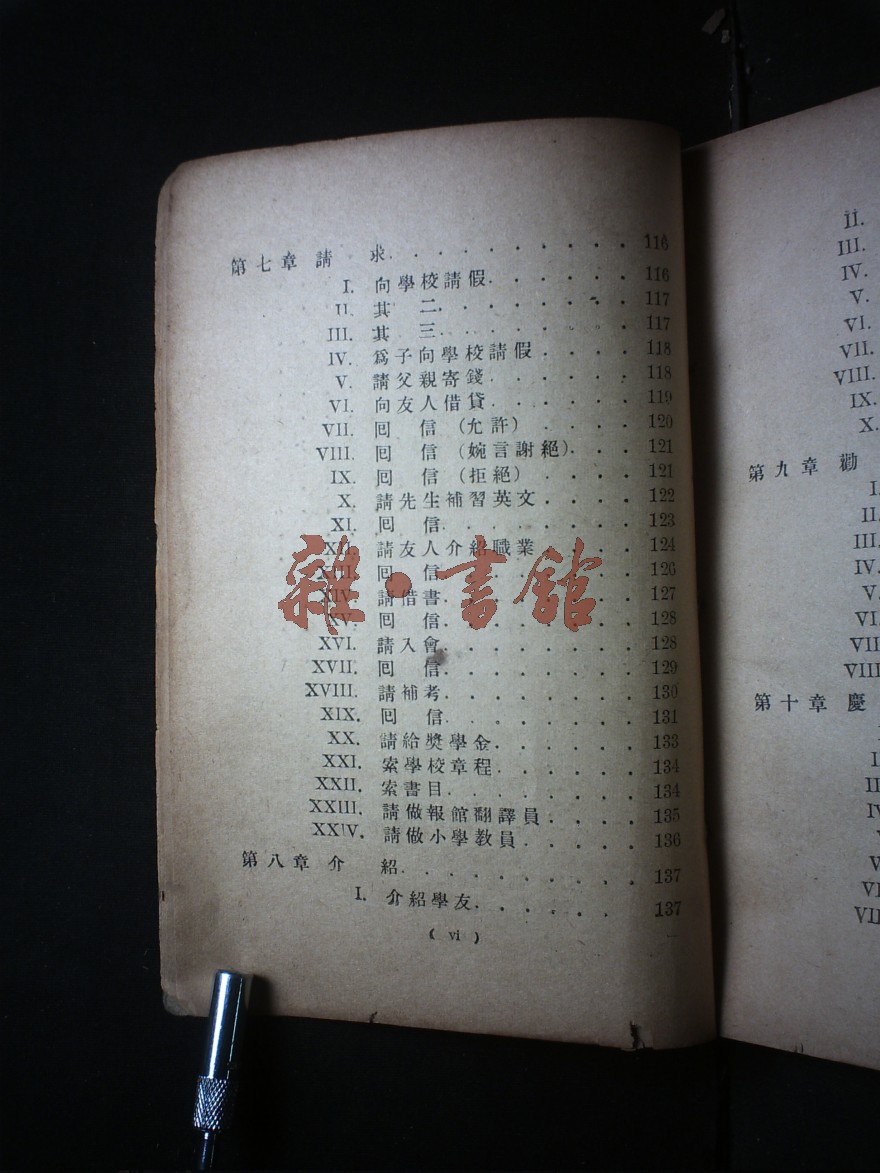 第七章 請 求 . . . . . . . . . 116
I. 向學校請假 . . . . . . 116
II. 其 二 . . . . . . . 117
III. 其 三 . . . . . . . 117
IV. 爲子向學校請假 . . . . 118
V. 請父親寄錢 . . . . . . 118
VI. 向友人借貸 . . . . . . 119
VII. 囘 信 (允許) . . . . 120
VIII. 囘 信 (婉言謝絕) . . . 121
IX. 囘 信 (拒絕) . . . . 121
X. 請先生補習英文 . . . . 122
XI. 囘 信 . . . . . . . 123
XII. 請友人介紹職業 . . . . 124
XIII. 囘 信 . . . . . . . 126
XIV. 請借書 . . . . . . . 127
XV. 囘 信 . . . . . . . 128
XVI. 請入會 . . . . . . . 128
XVII. 囘 信 . . . . . . . 129
XVIII. 請補考 . . . . . . . 130
XIX. 囘 信 . . . . . . . 131
XX. 請給獎學金 . . . . . . 133
XXI. 索學校章程 . . . . . . 134
XXII. 索書目 . . . . . . . 134
XXIII. 請做報館翻譯員 . . . . 135
XXIV. 請做小學教員 . . . . . 136
第八章 介 紹 . . . . . . . . . 137
I. 介紹學友 . . . . . . 137
( vi )
雜·書館
II.
III.
IV.
V.
VI.
VII.
VIII.
IX.
X.
第九章 勸
I.
II.
III.
IV.
V.
VI.
VII
VIII
第十章 慶